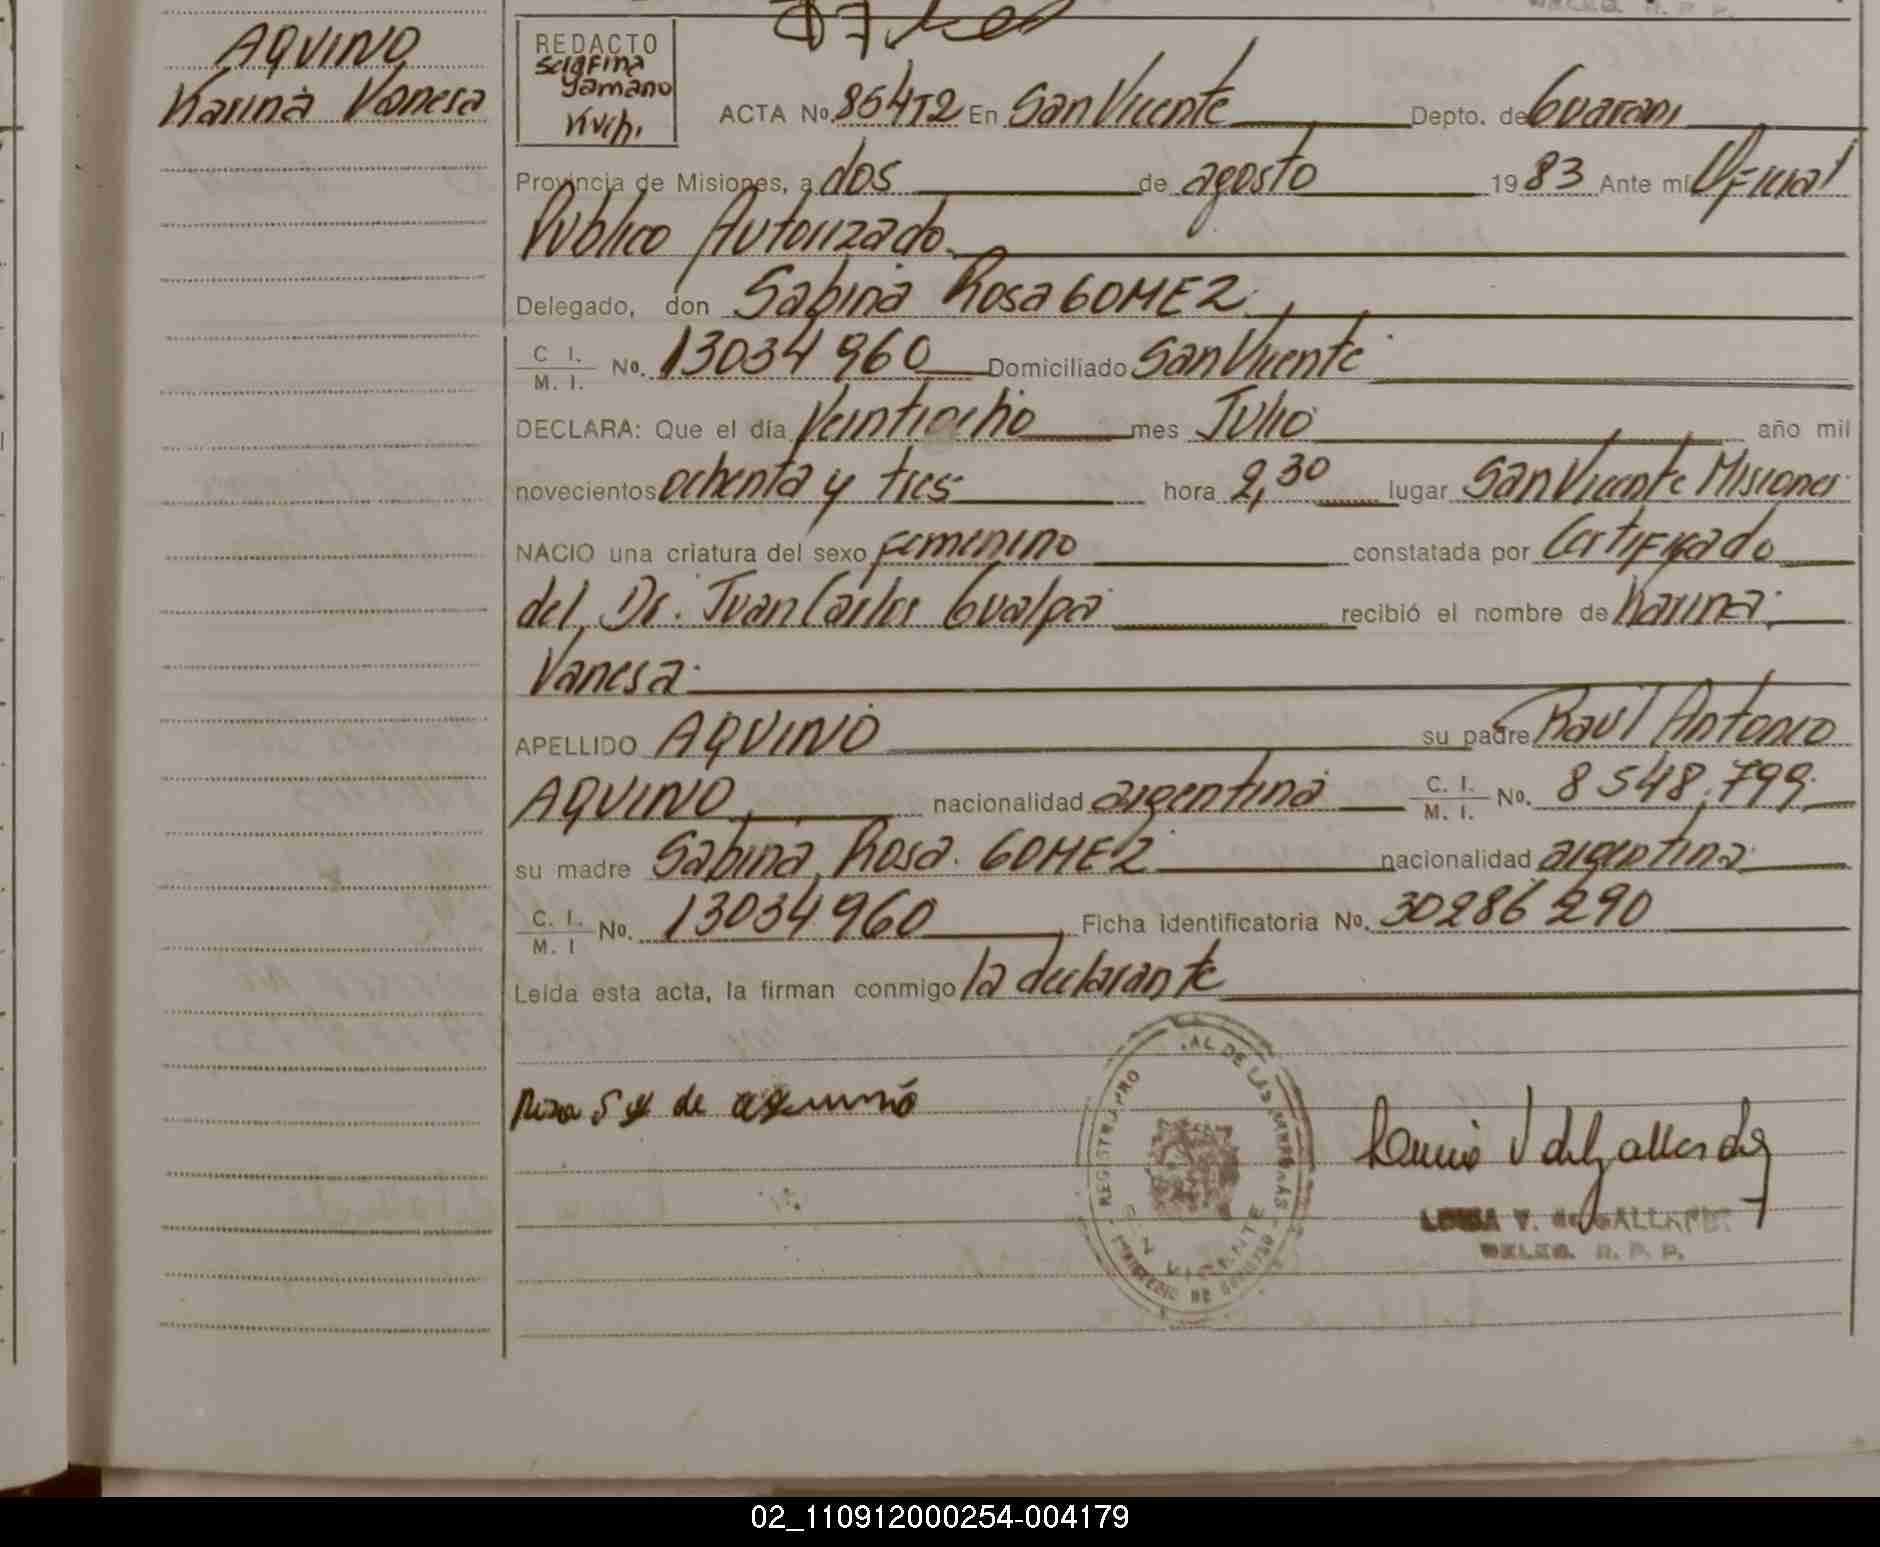 AQUINO
Karina Vanesa
REDACTO
Serafina
Yamano
Kivchi
ACTA No. 854T2 En San Vicente Depto. de Guarani
Provincia de Misiones, a dos de agosto 1983 Ante mí Oficial
Público Autorizado
Delegado, don Sabina Rosa GOMEZ
C. I.
M. I. No. 13034960 Domiciliado San Vicente
DECLARA: Que el día Veintiocho mes Julio año mil
novecientos ochenta y tres hora 2,30 lugar San Vicente Misiones
NACIO una criatura del sexo femenino constatada por Certificado
del Dr. Juan Carlos Gualpa recibió el nombre de Karina
Vanesa
APELLIDO AQUINO su padre Raúl Antonio
AQUINO nacionalidad argentina C. I.
M. I. No. 8548.799
su madre Sabina Rosa GOMEZ nacionalidad argentina
C. I.
M. I No. 13034960 Ficha identificatoria No. 30286290
Leída esta acta, la firman conmigo la declarante
REGISTRO PRO AL DE LAS PERSONAS
SAN VICENTE
MINISTERIO DE GOBIERNO
LUISA V. de GALLARDO
DELEG. R. P. P.
02_110912000254-004179